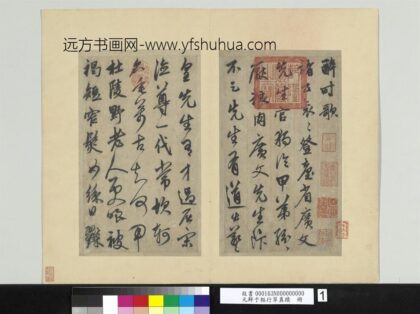 远方书画网-www.yfshuhua.com
醉時歌
諸公衮々登臺省廣文
先生官獨冷甲第紛
厭粱肉廣文先生飯
不足先生有道出羲
皇先生有才過屈宋
德尊一代常轗軻
名垂萬古知何用
杜陵野老人更嗤被
褐短窄鬢如絲日糴
故書 000163N000000000
元鮮于樞行草真蹟 冊
1